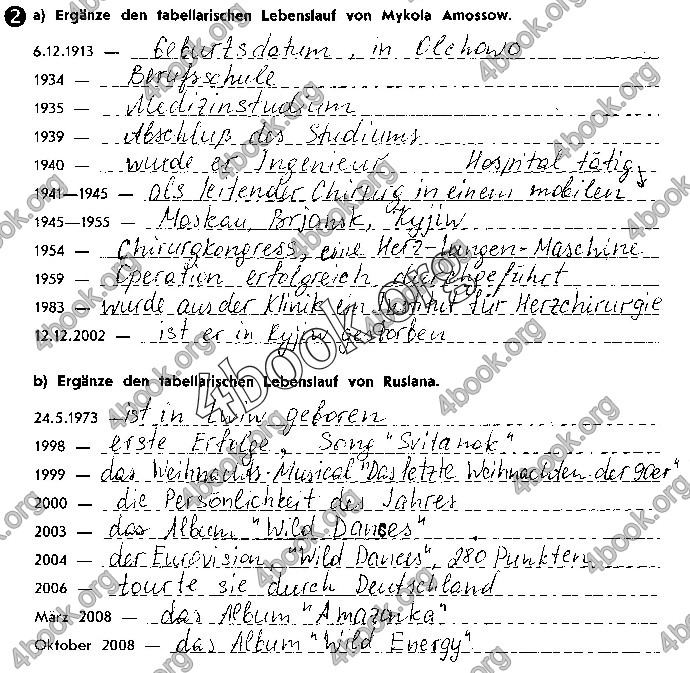 2 a) Ergänze den tabellarischen Lebenslauf von Mykola Amossow.
6.12.1913 — Geburtsdatum, in Olchowo
1934 — Berufsschule
1935 — Medizinstudium
1939 — Abschluß des Studiums
1940 — wurde er Ingenieur Hospital tätig
1941—1945 — als leitender Chirurg in einem mobilen
1945—1955 — Moskau, Brjansk, Kyjiw
1954 — Chirurgkongress, eine Herz-Lungen-Maschine
1959 — Operation erfolgreich durchgeführt
1983 — wurde aus der Klinik ein Institut für Herzchirurgie
12.12.2002 — ist er in Kyjiw gestorben
b) Ergänze den tabellarischen Lebenslauf von Ruslana.
24.5.1973 — ist in Lwiw geboren
1998 — erste Erfolge, Song "Svitanok"
1999 — das Weihnachts-Musical "Das letzte Weihnachten der 90er"
2000 — die Persönlichkeit des Jahres
2003 — das Album "Wild Dances"
2004 — der Eurovision, "Wild Dances", 280 Punkten
2006 — tourte sie durch Deutschland
März 2008 — das Album "Amazonka"
Oktober 2008 — das Album "Wild Energy"
4book.org